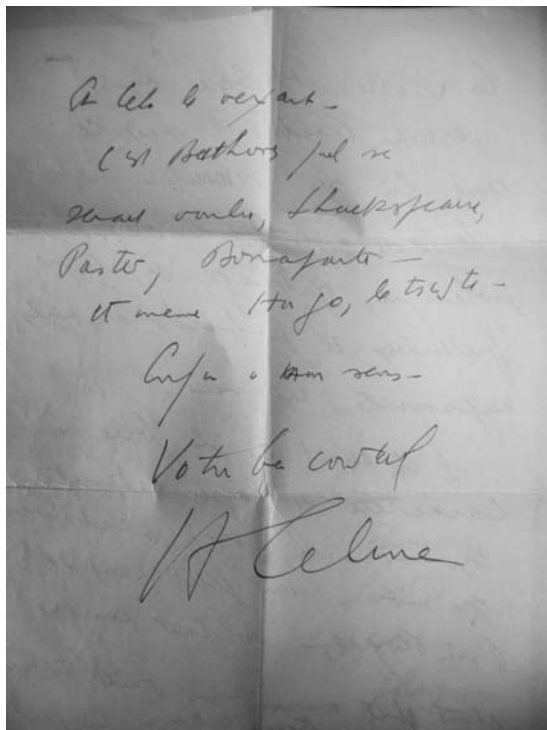 et cela le vexait -
C'est Bethoven qu'il se
serait voulu, Shackspeare,
Paster, Bonaparte -
et meme Hugo, le triste -
Enfin à mon sens -
Votre bien cordial
LF Celine